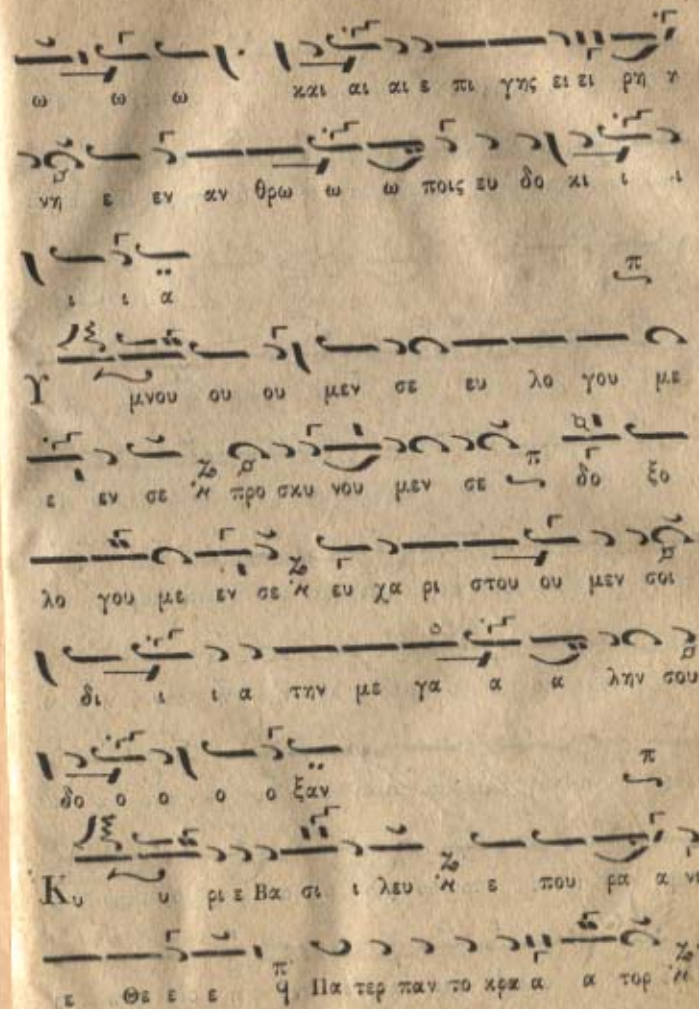 ω ω ω και αι αι ε πι γης ει ει ρη η
νη ε εν αν θρω ω ω ποις ευ δο κι ι ι
ι ι α
Υ μνου ου ου μεν σε ευ λο γου με
ε εν σε προ σκυ νου μεν σε δο ξο
λο γου με εν σε ευ χα ρι στου ου μεν σοι
δι ι ι α την με γα α α λην σου
δο ο ο ο ο ξαν
Κυ υ ρι ε Βα σι ι λευ ε που ρα α νι
ε Θε ε ε Πα τερ παν το κρα α α τορ